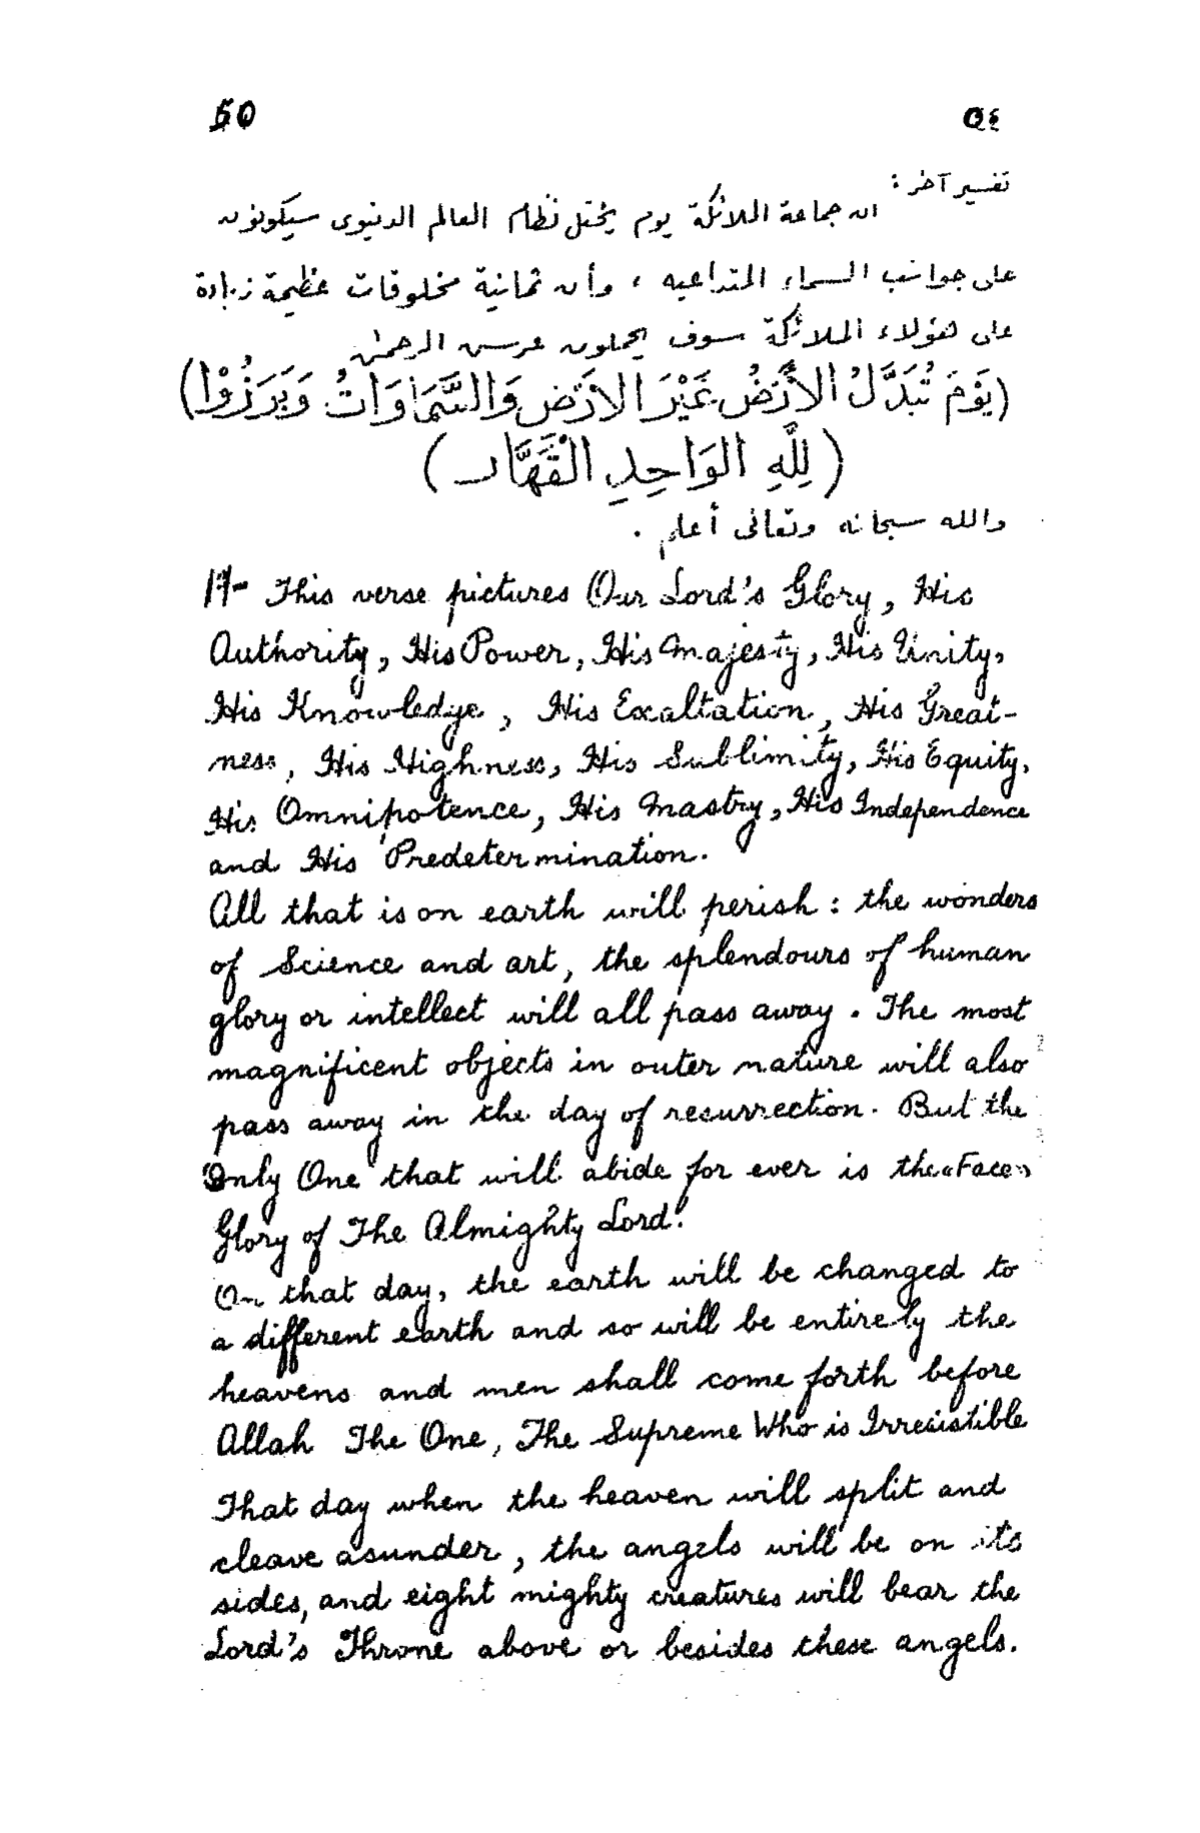 50 ٥٤
تفسير آخر :
ان جماعة الملائكة يوم يختل نظام العالم الدنيوى سيكونون
على جوانب السماء المتداعيه ، وأن ثمانية مخلوقات عظيمة زيادة
على هؤلاء الملائكة سوف يحملون عرش الرحمن
(يَوْمَ تُبَدَّلُ الأَرْضُ غَيْرَ الأَرْضِ وَالسَّمَاوَاتُ وَبَرَزُوْا)
(لِلَّهِ الوَاحِدِ الْقَهَّار)
والله سبحانه وتعالى أعلم .
17- This verse pictures Our Lord's Glory, His
Authority, His Power, His Majesty, His Unity,
His Knowledge, His Exaltation, His Great-
ness, His Highness, His Sublimity, His Equity,
His Omnipotence, His Mastry, His Independence
and His Predetermination.
All that is on earth will perish : the wonders
of Science and art, the splendours of human
glory or intellect will all pass away. The most
magnificent objects in outer nature will also
pass away in the day of resurrection. But the
Only One that will abide for ever is the «Face»
Glory of The Almighty Lord.
On that day, the earth will be changed to
a different earth and so will be entirely the
heavens and men shall come forth before
Allah The One, The Supreme Who is Irresistible
That day when the heaven will split and
cleave asunder, the angels will be on its
sides, and eight mighty creatures will bear the
Lord's Throne above or besides these angels.